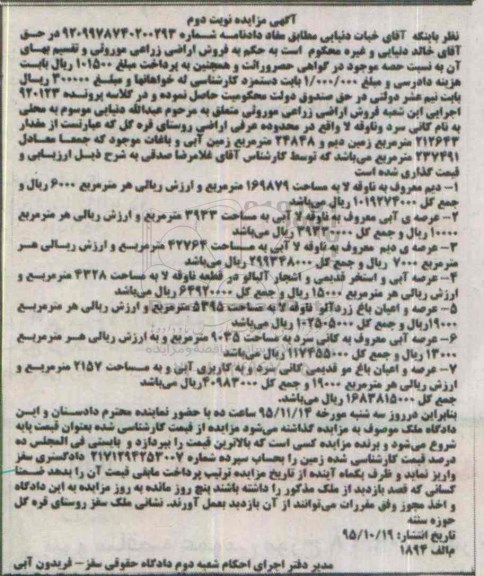 آگهی مزایده نوبت دوم
نظر باینکه آقای خبات دنیایی مطابق مفاد دادنامه شماره ۹۲۰۹۹۷۸۷۴۰۲۰۰۲۹۳ در حق
آقای خالد دنیایی و غیره محکوم است به حکم به فروش اراضی زراعی موروثی و تقسیم بهای
آن به نسبت حصه موجود در گواهی حصروراثت و همچنین به پرداخت مبلغ ۱۰۱۵۰۰ ریال بابت
هزینه دادرسی و مبلغ ۱/۰۰۰/۰۰۰ بابت دستمزد کارشناسی له خواهانها و مبلغ ۳۰۰۰۰۰ ریال
بابت نیم عشر دولتی در حق صندوق دولت محکومیت حاصل نموده و در کلاسه پرونده ۹۲۰۱۲۳
اجرایی این شعبه فروش اراضی زراعی موروثی متعلق به مرحوم عبدالله دنیایی موسوم به محلی
به نام کانی سرد وناوقه لا واقع در محدوده عرفی اراضی روستای قره گل که عبارتست از مقدار
۲۱۲۶۴۳ مترمربع زمین دیم و ۲۴۸۴۸ مترمربع زمین آبی و باغات موجود که جمعا معادل
۲۳۷۴۹۱ مترمربع می‌باشد که توسط کارشناس آقای غلامرضا صدقی به شرح ذیل ارزیابی و
قیمت گذاری شده است
۱- دیم معروف به ناوقه لا به مساحت ۱۶۹۸۷۹ مترمربع و ارزش ریالی هر مترمربع ۶۰۰۰ ریال و
جمع کل ۱۰۱۹۲۷۴۰۰۰ ریال می‌باشد
۲- عرصه ی آبی معروف به ناوقه لا آبی به مساحت ۳۹۳۳ مترمربع و ارزش ریالی هر مترمربع
۱۰۰۰۰ ریال و جمع کل ۳۹۳۳۰۰۰۰ ریال می‌باشد
۳- عرصه ی دیم معروف به ناوقه لا آبی به مساحت ۴۲۷۶۴ مترمربع و ارزش ریالی هر
مترمربع ۷۰۰۰ ریال و جمع کل ۲۹۹۳۴۸۰۰۰ ریال می‌باشد
۴- عرصه آبی و استخر قدیمی و اشجار آلبالو در قطعه ناوقه لا به مساحت ۴۳۲۸ مترمربع و
ارزش ریالی هر مترمربع ۱۵۰۰۰ ریال و جمع کل ۶۴۹۲۰۰۰۰ ریال می‌باشد
۵- عرصه و اعیان باغ زردآلو ناوقه لا به مساحت ۵۳۹۵ مترمربع و ارزش ریالی هر مترمربع
۱۹۰۰۰ریال و جمع کل ۱۰۲۵۰۵۰۰۰ ریال می‌باشد
۶- عرصه آبی معروف به کانی سرد به مساحت ۹۰۳۵ مترمربع و به ارزش ریالی هر مترمربع
۱۳۰۰۰ ریال و جمع کل ۱۱۷۴۵۵۰۰۰ ریال می‌باشد
۷- عرصه و اعیان باغ مو قدیمی کانی سرد و به کاریزی آبی و به مساحت ۲۱۵۷ مترمربع و
ارزش ریالی هر مترمربع ۱۹۰۰۰ و جمع کل ۴۰۹۸۳۰۰۰ریال می‌باشد
جمع کل ۱۶۸۳۸۱۵۰۰۰ ریال می‌باشد.
بنابراین درروز سه شنبه مورخه ۹۵/۱۱/۱۲ ساعت ده با حضور نماینده محترم دادستان و این
دادگاه ملک موصوف به مزایده گذاشته می‌شود مزایده از قیمت کارشناسی شده بعنوان قیمت پایه
شروع می‌شود و برنده مزایده کسی است که بالاترین قیمت را بپردازد و بایستی فی المجلس ده
درصد قیمت کارشناسی شده زمین را بحساب سپرده شماره ۲۱۷۱۲۹۴۲۵۳۰۰۷ دادگستری سقز
واریز نماید و ظرف یکماه آینده از تاریخ مزایده ترتیب پرداخت مابقی قیمت آن را بدهد ضمنا
کسانی که قصد بازدید از ملک مذکور را داشته باشند پنج روز مانده به روز مزایده به این دادگاه
و اخذ مجوز وفق مقررات می‌توانند از آن بازدید بعمل آورند. نشانی ملک سقز روستای قره گل
حوزه سنته
تاریخ انتشار: ۹۵/۱۰/۱۹
م‌الف ۱۸۹۴
مدیر دفتر اجرای احکام شعبه دوم دادگاه حقوقی سقز- فریدون آبی